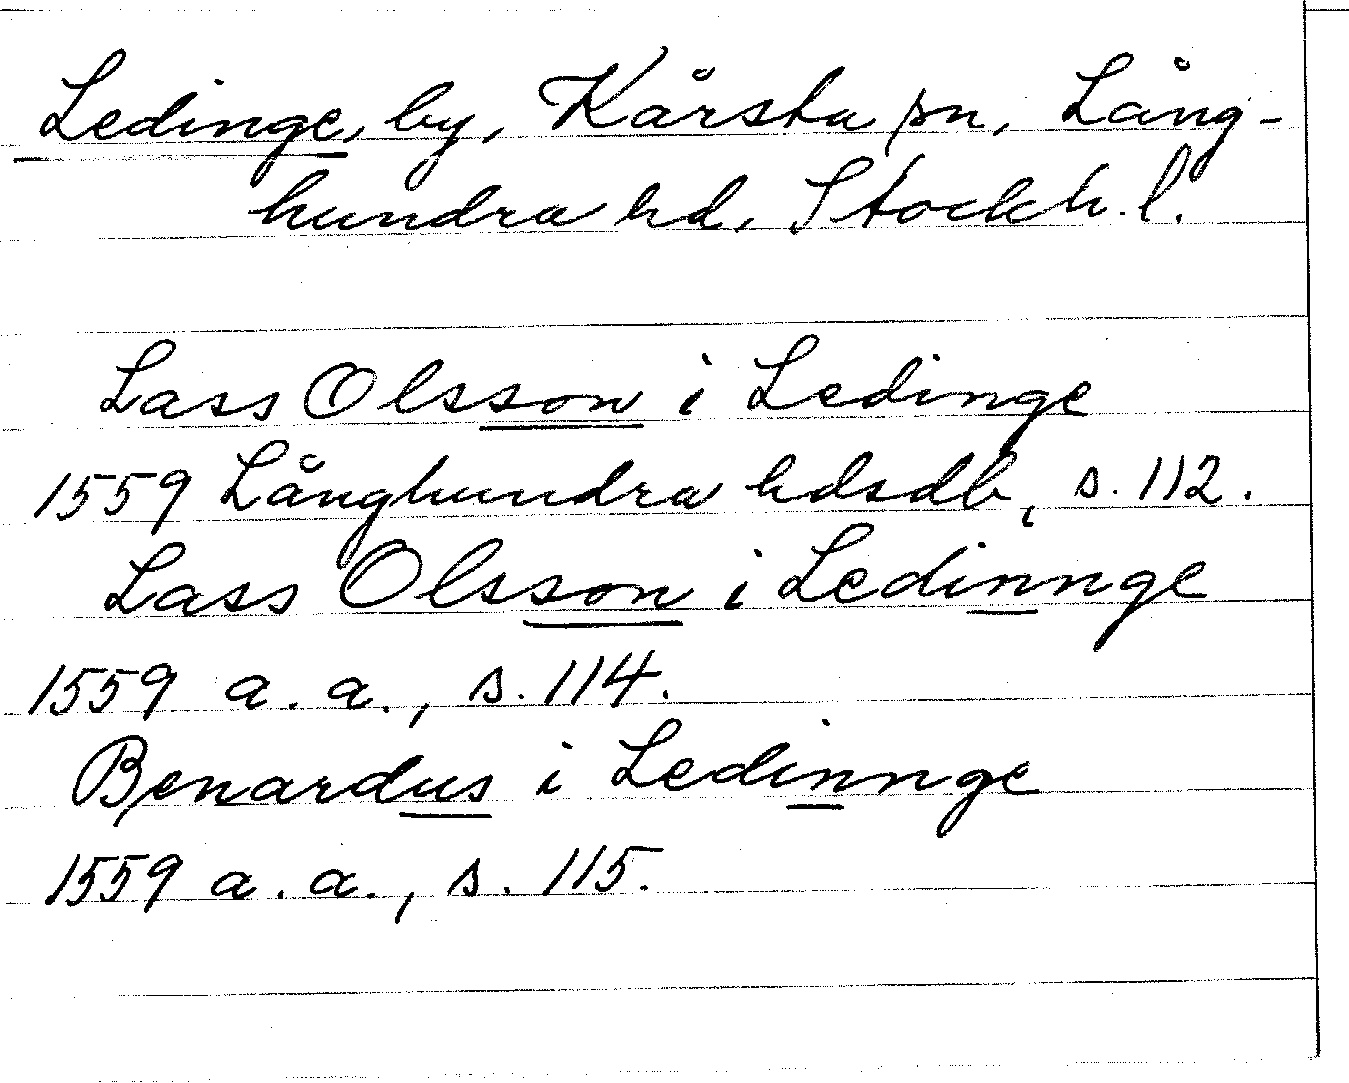 Ledinge, by, Kårsta sn, Lång-
hundra hd, Stockh. l.
Lass Olsson i Ledinge
1559 Långhundra hdsdb, s. 112.
Lass Olsson i Ledinnge
1559 a. a., s. 114.
Benardus i Ledinnge
1559 a. a., s. 115.